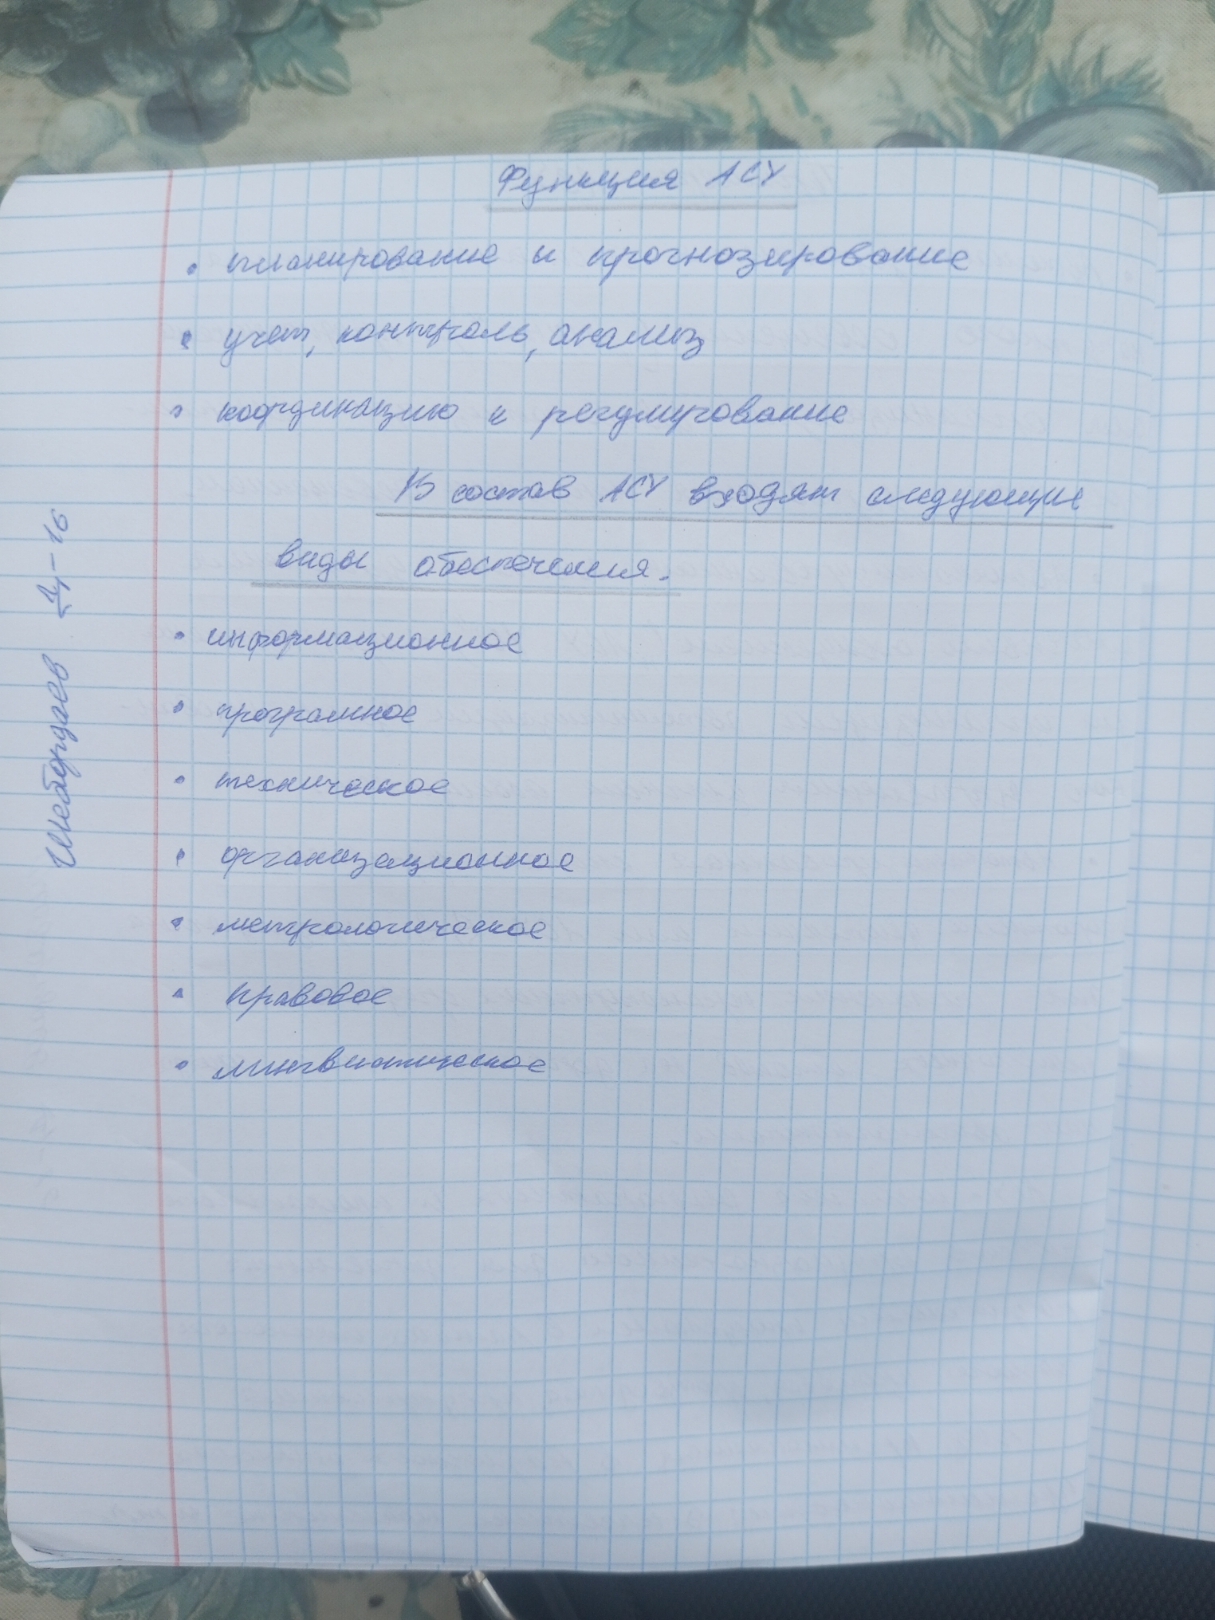 Функция АСУ
• планирование и прогнозирование
• учет, контроль, анализ
• координацию и регулирование
В состав АСУ входят следующие
виды обеспечения.
• информационное
• програмное
• техническое
• организационное
• метрологическое
• правовое
• лингвистическое